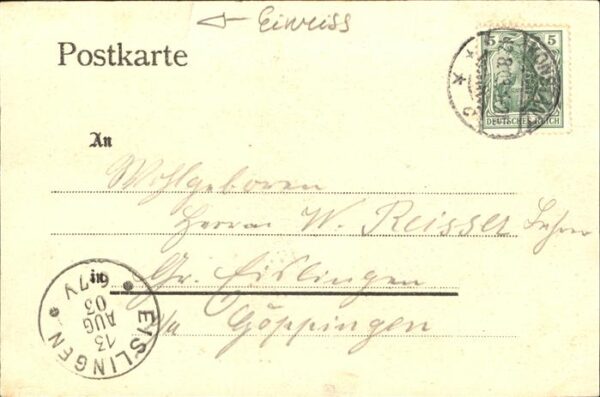 Eiweiss
Postkarte
5 5
DEUTSCHES REICH
An
Wohlgeboren
Herrn W. Reisser Lehrer
in Gr. Eislingen
Göppingen
EISLINGEN
13
AUG
03
6-7V